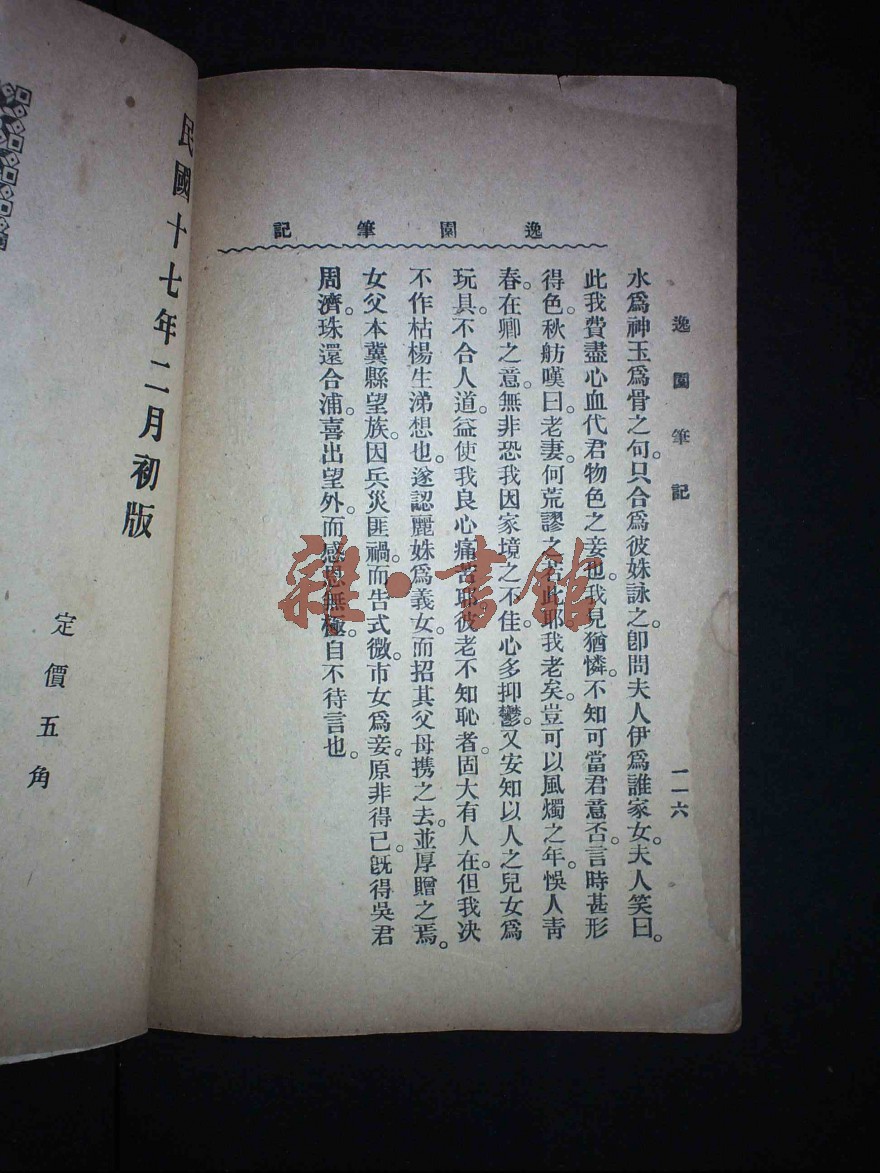 逸園筆記
一一六
逸園筆記
水爲神玉爲骨之句。只合爲彼姝詠之。卽問夫人伊爲誰家女。夫人笑曰。
此我費盡心血代君物色之妾也。我見猶憐。不知可當君意否。言時甚形
得色。秋舫嘆曰。老妻。何荒謬之若此耶。我老矣。豈可以風燭之年。悞人靑
春。在卿之意。無非恐我因家境之不佳。心多抑鬱。又安知以人之兒女爲
玩具。不合人道。益使我良心痛苦耶。彼老不知恥者。固大有人在。但我决
不作枯楊生涕想也。遂認麗姝爲義女。而招其父母携之去。並厚贈之焉。
女父本冀縣望族。因兵災匪禍。而吿式微。市女爲妾。原非得已。旣得吳君
周濟。珠還合浦。喜出望外。而感恩無極。自不待言也。
民國十七年二月初版
定價五角
雜·書館